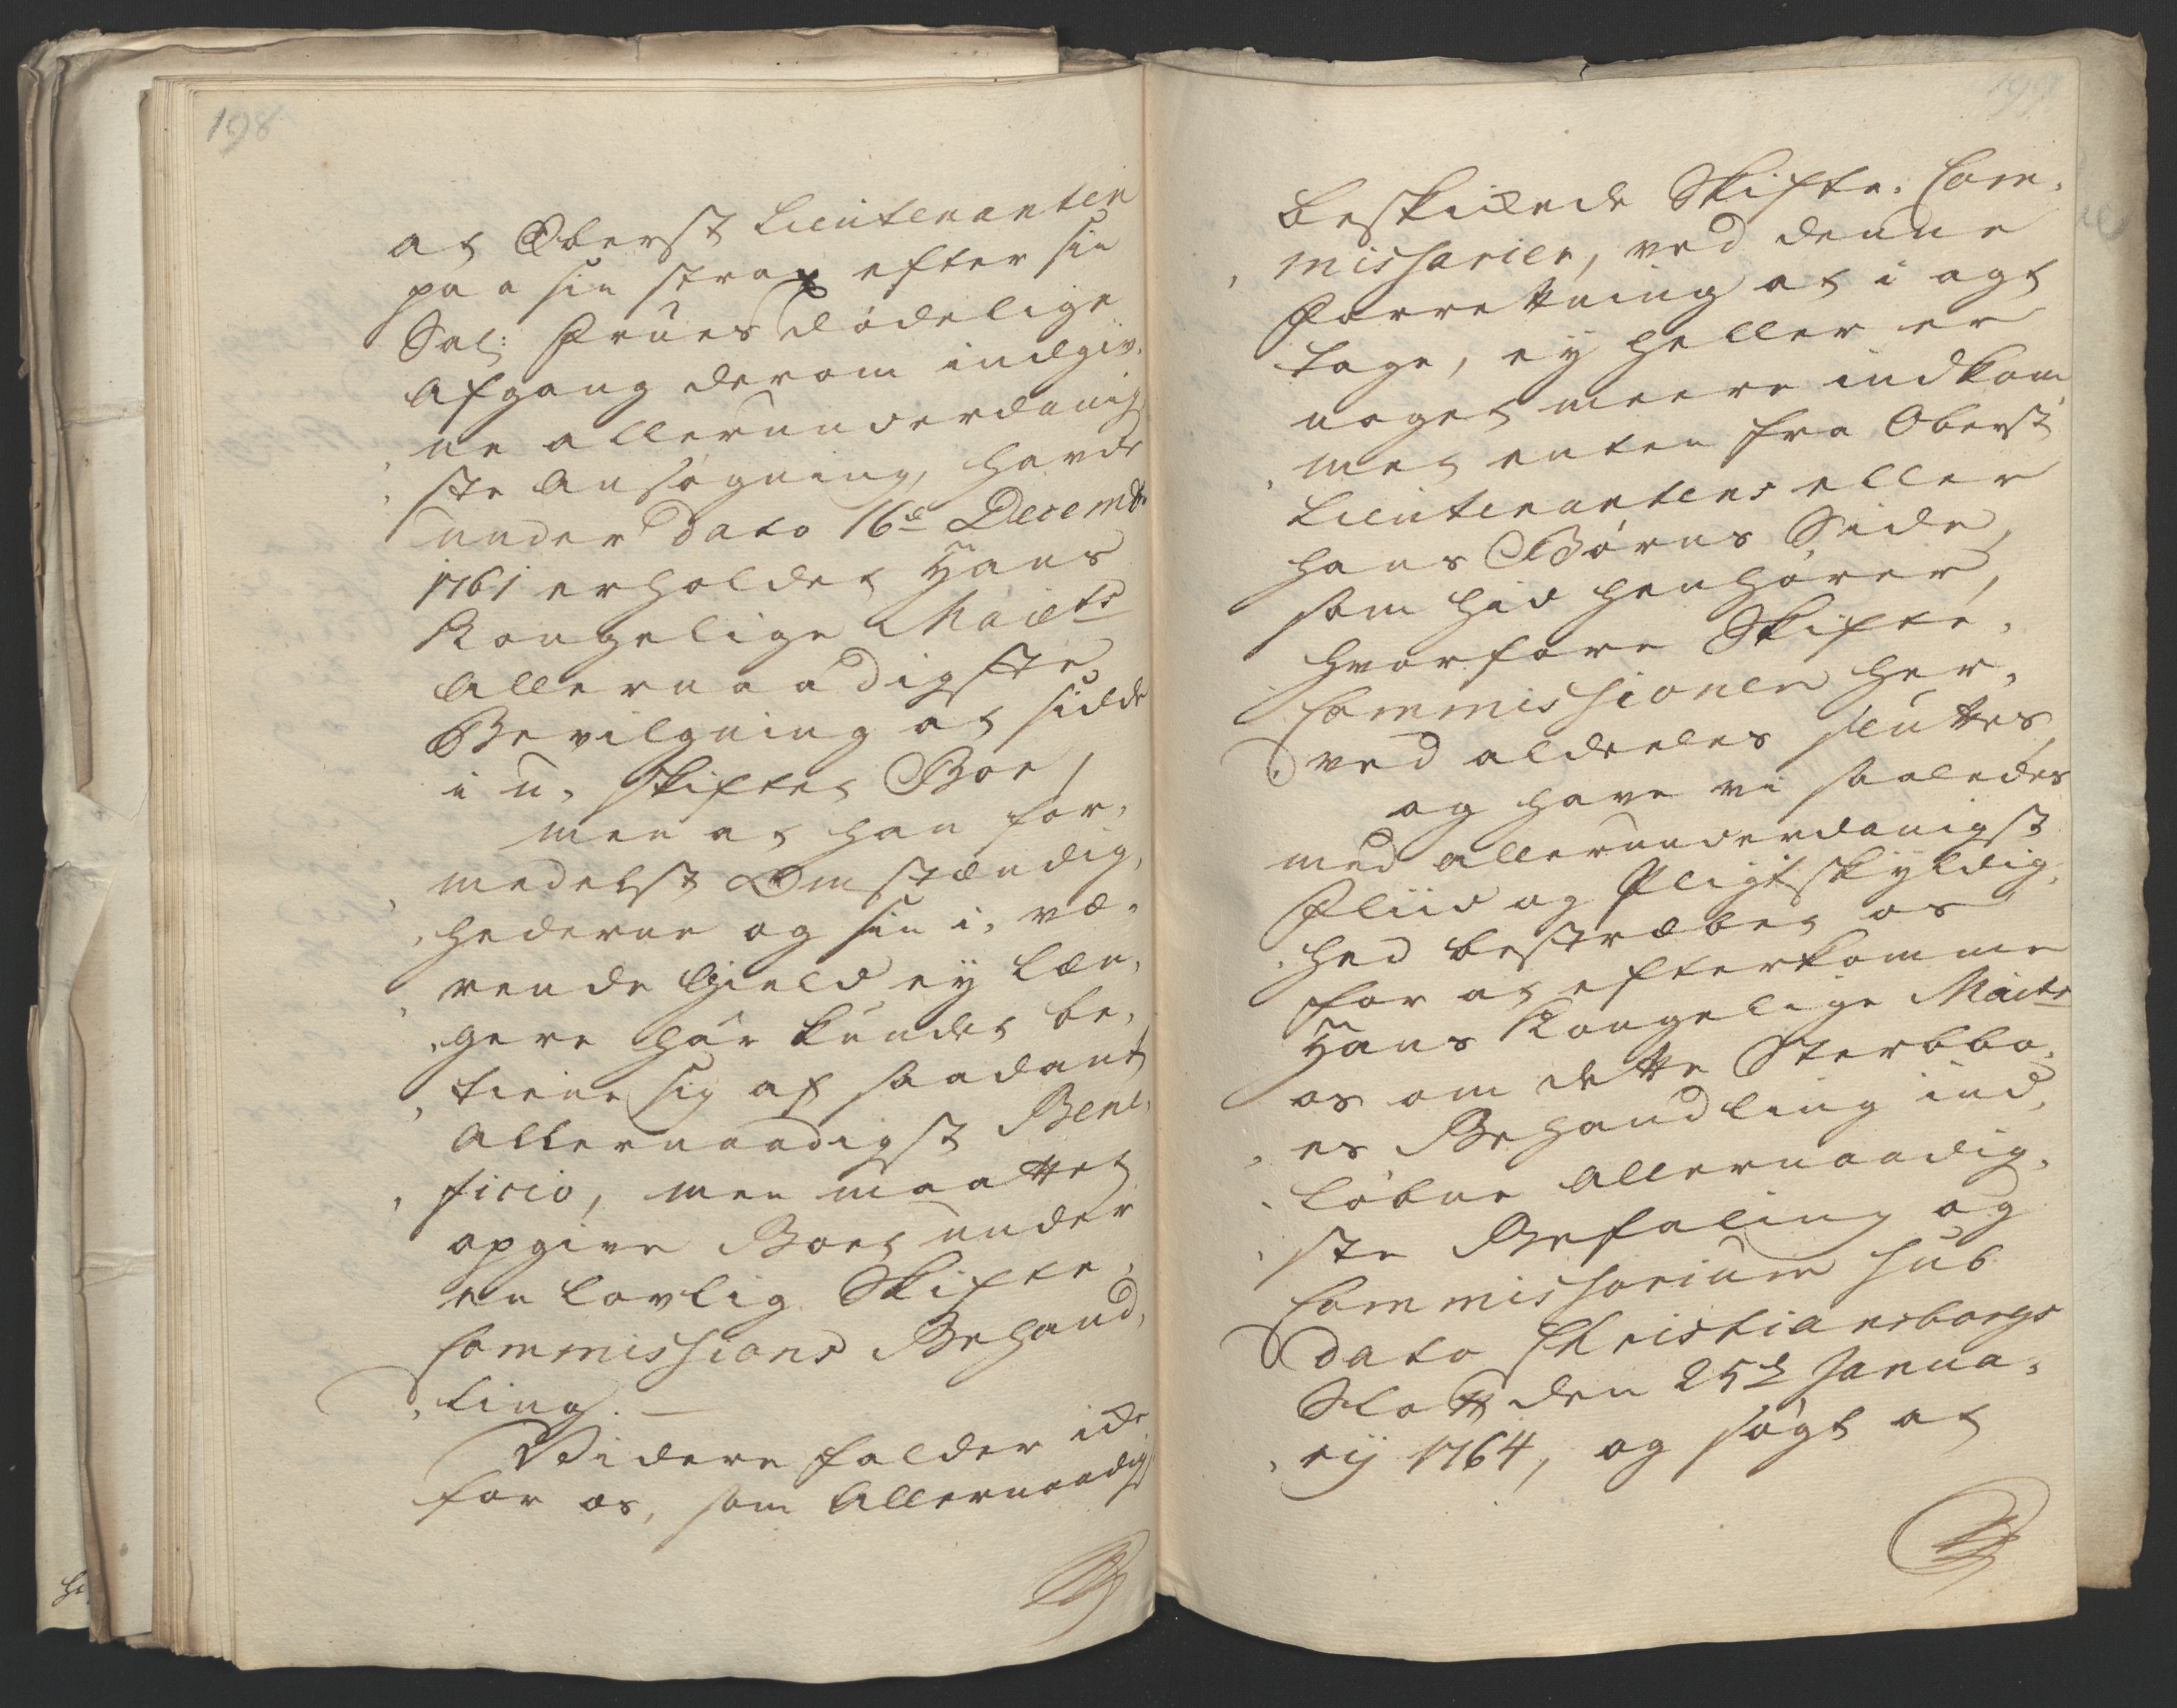 198
at Oberst Lieutenanten
paa sin strax efter sin
Sal: Frues dödelige
Afgang derom indgiv,
,ne allerunderdanig
,ste Ansögning, havde
under Dato 16de Decembr
1761 erholdet Hans
Kongelige Maÿts
Allernaadigste
Bevilgning at sidde
i u, skiftet Boe,
men at han for,
,medelst Omstændig,
,hederne og sin i, væ,
,rende Gield ey læn,
,gere har kundet be,
,tiene sig af saadant
Allernaadigst Bene,
,ficio, men maattet
opgive Boet under
en lovlig Skifte,
Commissions Behand,
,ling. —
Videre falder icke
for os, som Allernaadigst
199
beskickede Skifte, Com,
,missarier, ved denne
Forretning at i agt
tage, ey heller er
noget meere indkom
,met enten fra Oberst
Lieutenantens eller
hans Börns Side,
som hid henhörer,
hvorfore Skifte,
Commissionen her,
,ved aldeeles sluttes,
og have vi saaledes
med allerunderdanigst
Fliid og Pligtskyldig,
,hed bestræbet os
for at efterkomme
Hans Kongelige Maÿts
os om dette Sterbbo,
,es Behandling ind,
,löbne allernaadig,
,ste Befaling og
Commissorium sub
dato Christiansborgs
Slott den 25de Janua,
,rij 1764, og sögt at